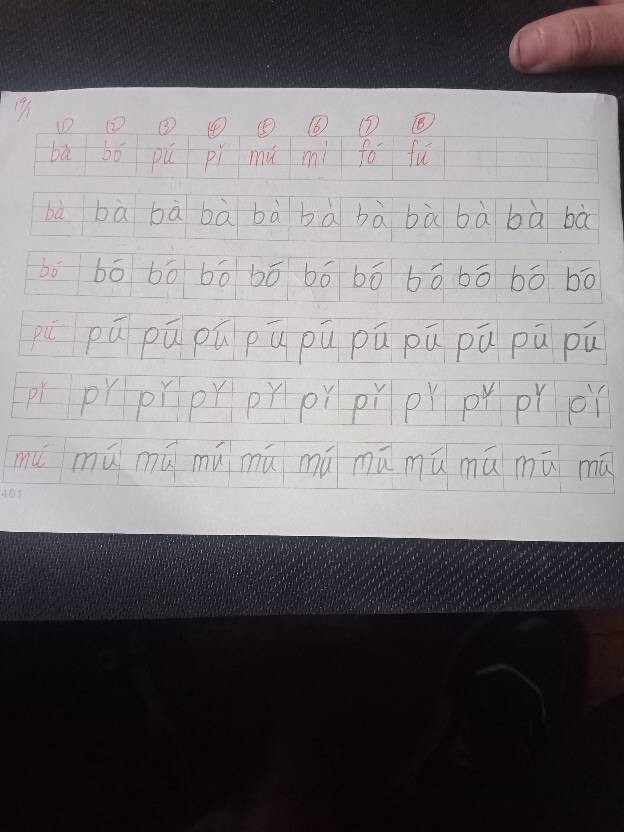 19/1
① ② ③ ④ ⑤ ⑥ ⑦ ⑧
bà bó pú pǐ mú mì fó fú
bà bà bà bà bà bà bà bà bà bà bà
bó bō bó bó bō bó bō bō bō bō bō
pú pū pū pū pū pū pū pū pū pū pū
pǐ pǐ pǐ pǐ pǐ pǐ pǐ pǐ pǐ pǐ pǐ
mú mú mú mú mú mú mū mú mú mū mū
401